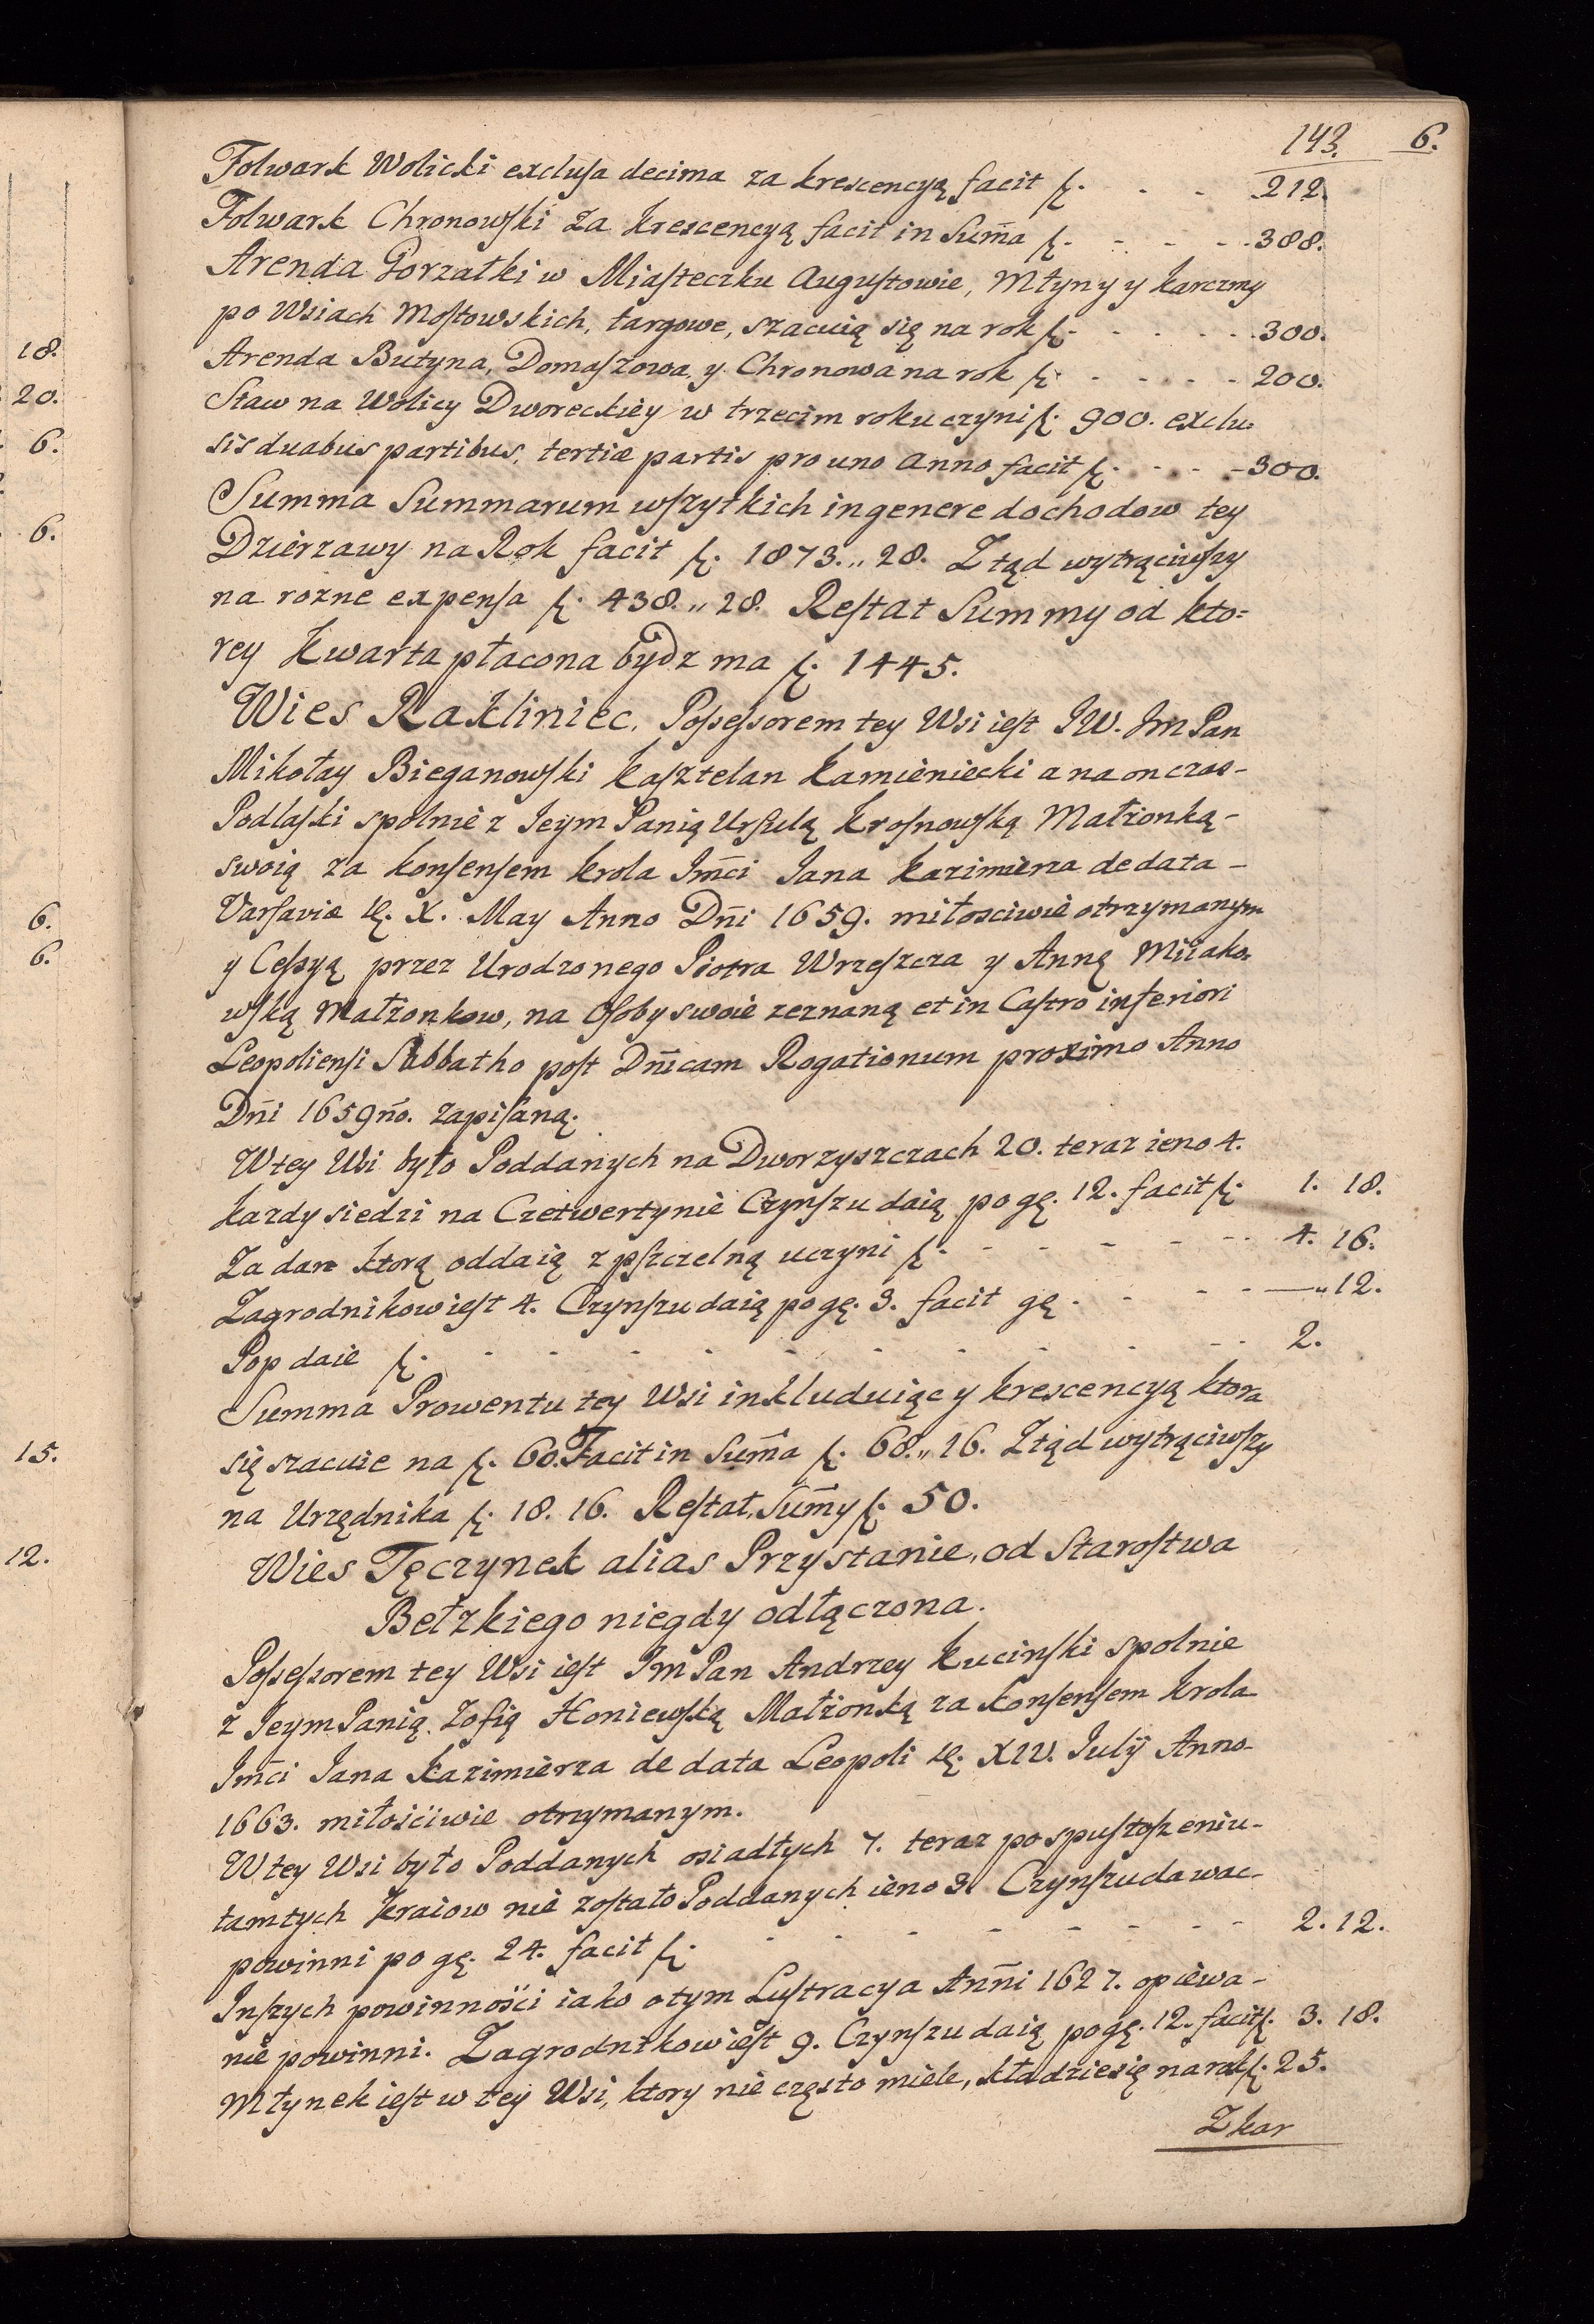 143. 6.
Folwark Wolicki exclusa decima za krescencyą facit f. - - - 212.
Folwark Chronowski za krescencyą facit in Sum̄a f. - - - - 388.
Arenda Gorzałki w Miasteczku Augustowie, Młyny y karczmy
po Wsiach Mostowskich, targowe, szacuią się na rok f. - - - - - 300.
Arenda Butyna, Domaszowa, y Chronowa na rok f. - - - - - 200.
Staw na Wolicy Dworeckiey w trzecim roku czyni f. 900. exclu=
sis duabus partibus, tertiæ partis pro uno Anno facit f. - - - - 300.
Summa Summarum wszytkich in genere dochodow tey
Dzierzawy na Rok facit f. 1873.,, 28. Ztąd wytrąciwszy
na rozne expensa f. 438.,, 28. Restat Summy od kto=
rey kwarta płacona bydz ma f. 1445.
Wies Rakliniec. Possessorem tey Wsi iest JW. Jm Pan
Mikołay Bieganowski kasztelan kamieniecki a na on czas-
Podlaski spolnie z Jeym Panią Urszulą Krosnowską Małżonką-
swoią za konsensem krola Jm̄ci Jana kazimierza de data-
Varsaviæ d. X. May Anno Dn̄i 1659. miłosciwie otrzymanym
y Cessyą przez Urodzonego Piotra Wrzeszcza y Annę Miiako=
wską Małżonkow, na Osoby swoie zeznaną et in Castro inferiori
Leopoliensi Sabbatho post Dn̄icam Rogationum proximo Anno
Dn̄i 1659n̄o. zapisaną.
W tey Wsi było Poddanych na Dworzyszczach 20. teraz ieno 4.
kazdy siedzi na Czetwertynie Czynszu daią po gę. 12. facit f. 1. 18.
Za dan ktorą oddaią z pszczelną uczyni f. - - - - - - - 4. 16.
Zagrodnikow iest 4. Czynszu daią po gę. 3. facit gę. - - - - —,, 12.
Pop daie f. - - - - - - - - - - - 2.
Summa Prowentu tey Wsi inkluduiąc y krescencyą ktora
się szacuie na f. 60. Facit in Sum̄a f. 68.,, 16. Ztąd wytrąciwszy
na Urzędnika f. 18. 16. Restat Sum̄y f. 50.
Wies Tęczynek alias Przystanie, od Starostwa
Bełzkiego niegdy odłączona.
Possessorem tey Wsi iest Jm Pan Andrzey Kucinski spolnie
z Jeym Panią Zofią Honiewską Małżonką za konsensem krola
Jm̄ci Jana Kazimierza de data Leopoli d. XIV. Julÿ Anno-
1663. miłościwie otrzymanym.
W tey Wsi było Poddanych osiadłych 7. teraz po spustoszeniu-
tamtych kraiow nie zostało Poddanych ieno 3. Czynszu dawac-
powinni po gę. 24. facit f. - - - - - - - - 2. 12.
Inszych powinności iako o tym Lustracya Ann̄i 1627. opiewa-
nie powinni. Zagrodnikow iest 9. Czynszu daią po gę. 12. facit f. 3. 18.
Młynek iest w tey Wsi, ktory nie często miele, kładzie się na rok f. 25.
Z kar
18.
20.
6.
6.
6.
6.
15.
12.